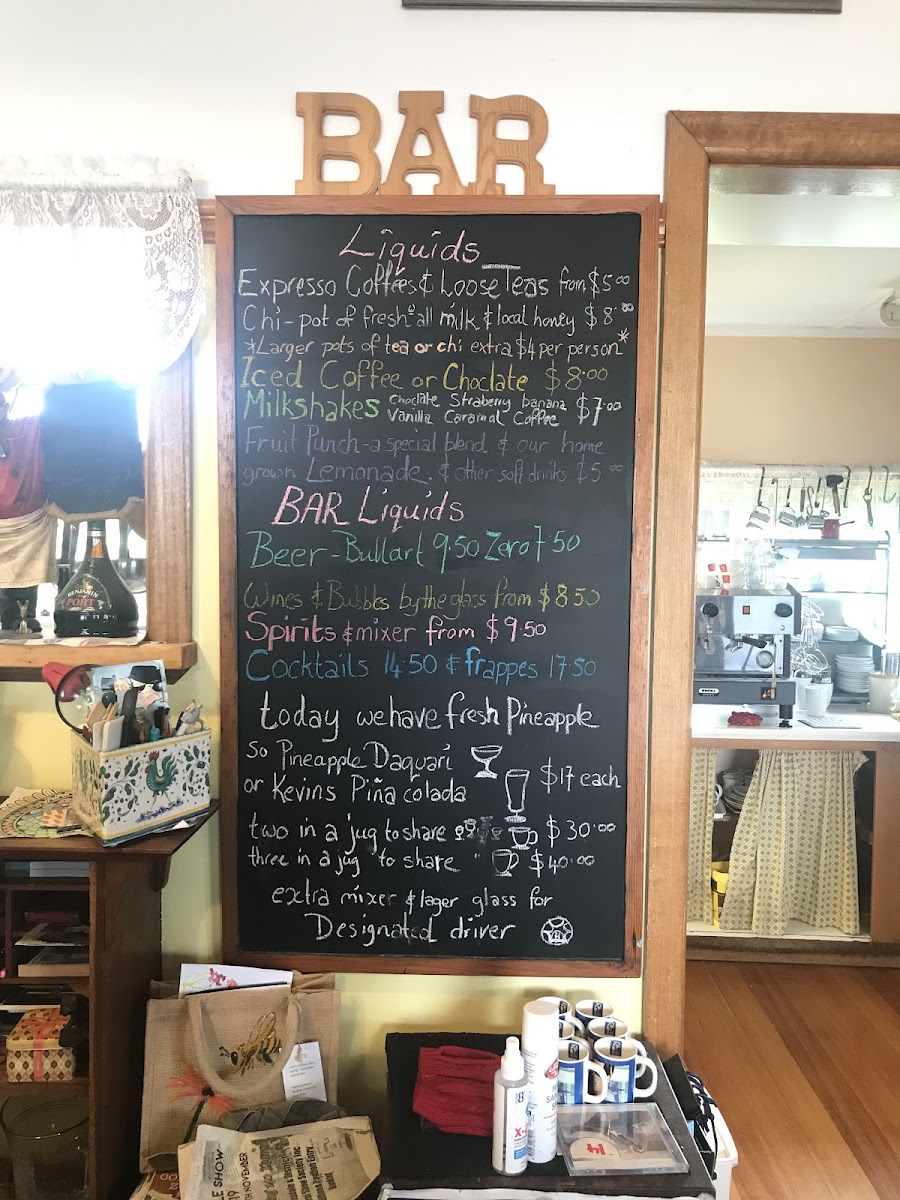 BAR
Liquids
Expresso Coffees & Loose Teas from $5.00
Chi-pot of fresh all milk & local honey $8.00
*Larger pots of tea or chi extra $4 per person*
Iced Coffee or Choclate $8.00
Milkshakes choclate Straberry banana $7.00
Vanilla Caramal Coffee
Fruit Punch - a special blend & our home
grown Lemonade. & other soft drinks $5.00
BAR Liquids
Beer - Bullart 9.50 Zero 7.50
Wines & Bubbles by the glass from $8.50
Spirits & mixer from $9.50
Cocktails 14.50 & frappes 17.50
today we have fresh Pineapple
So Pineapple Daquari
or Kevins Piña colada $17 each
two in a jug to share $30.00
three in a jug to share " $40.00
extra mixer & lager glass for
Designated driver
BENJAMIN
PORT
LE SHOW
NOVEMBER